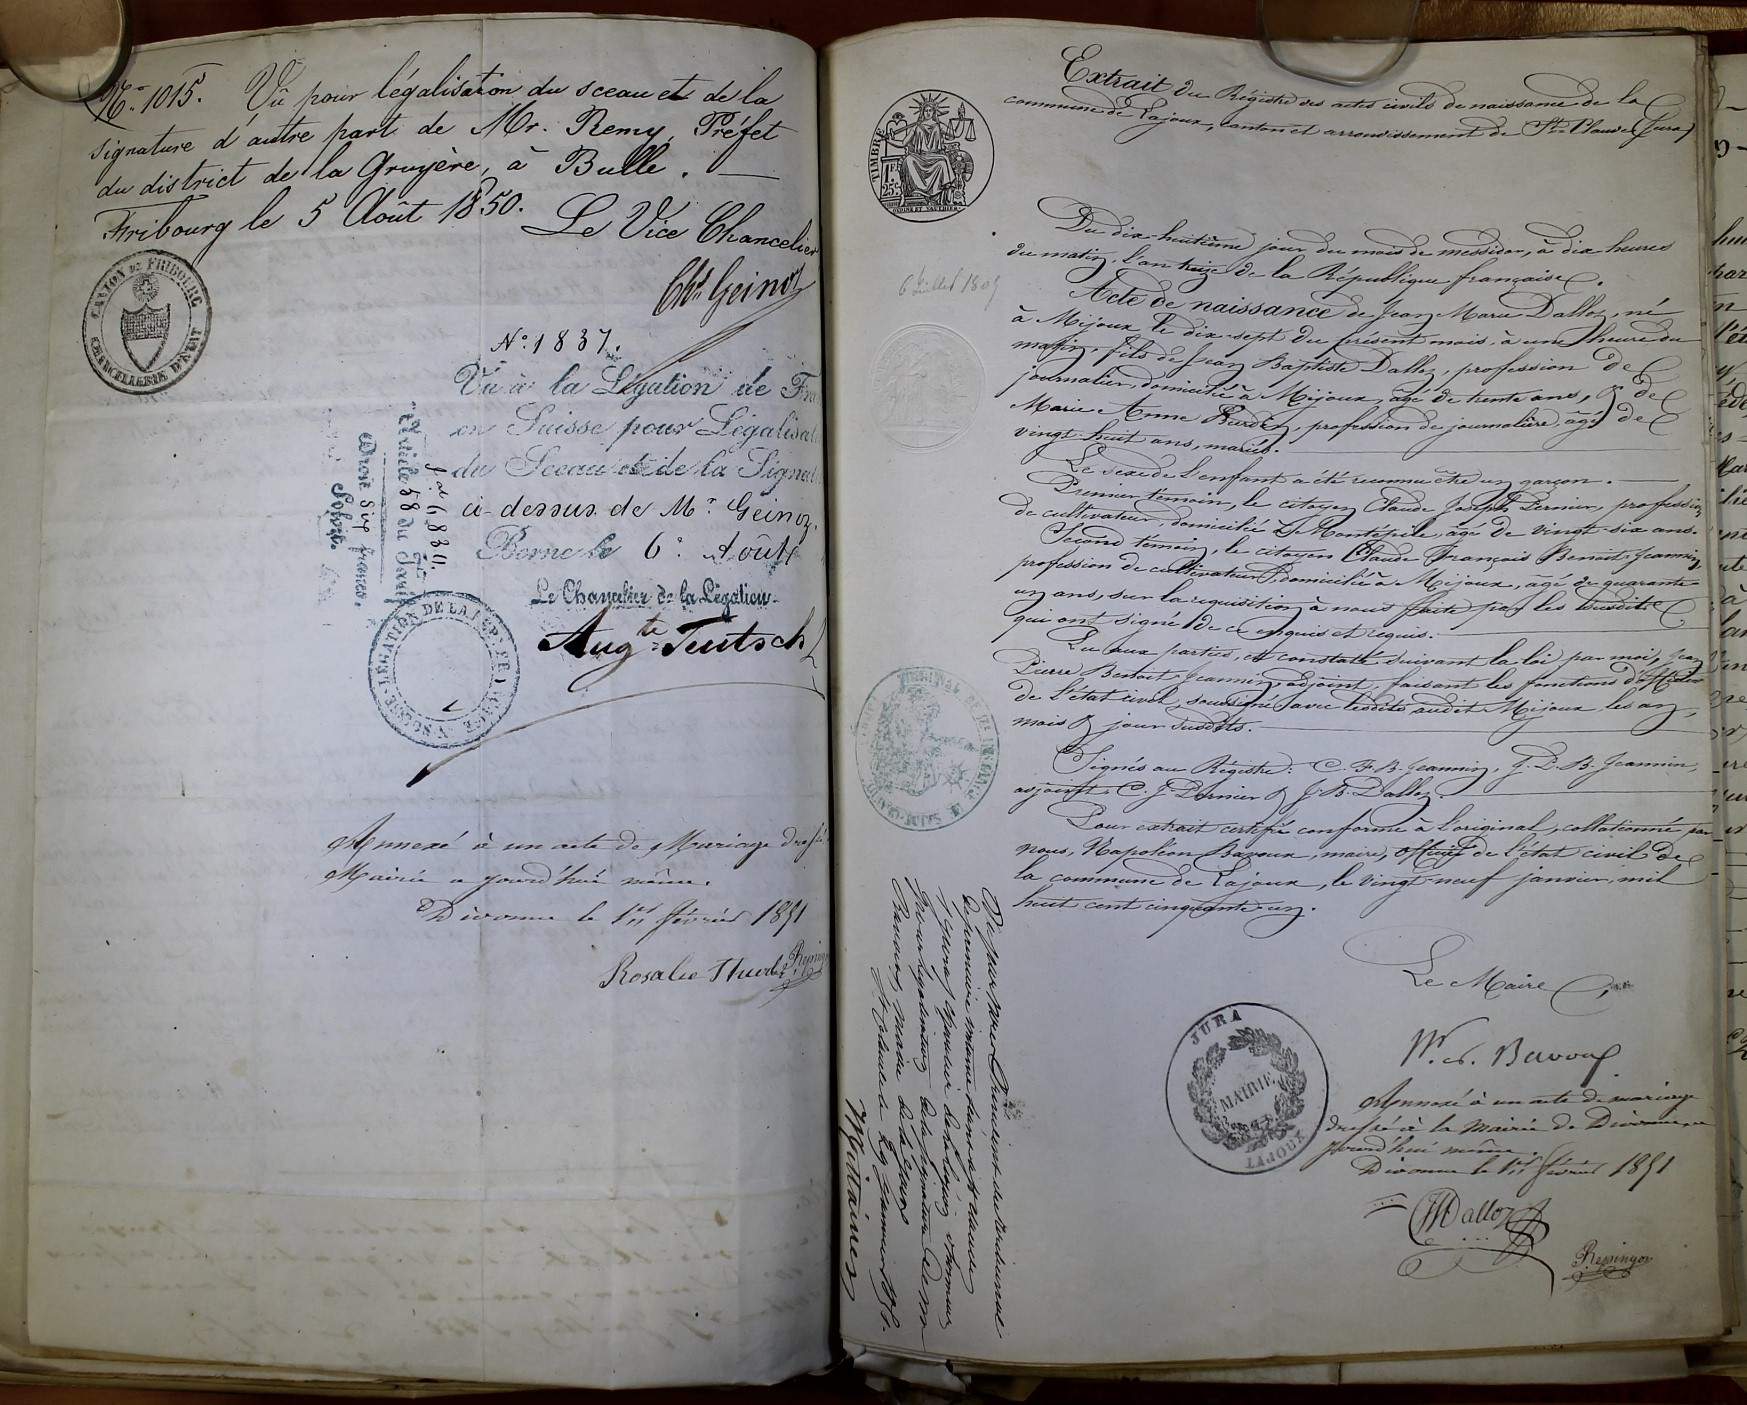 No. 1015. Vû pour légalisation du sceau et de la
signature d'autre part de Mr. Remy, Préfet
du district de la Gruyère, à Bulle.
Fribourg le 5 Août 1850.
Le Vice Chancelier
Chs. Geinoz
CANTON DE FRIBOURG
CHANCELLERIE D'ETAT
No. 1837.
Vu à la Légation de Fra
en Suisse pour Légalisat
du Sceau et de la Signat
ci-dessus de Mr. Geinoz.
Berne le 6. Août
Le Chancelier de la Légation
Augte. Teutsch
Article 58 du Tarif
Droit Six francs.
LEGATION DE LA REP. FRANCE EN SUISSE
Annexé à un acte de Mariage dressé
Mairie ajourd'hui même.
Divonne le 1er février 1851
Rosalie
TIMBRE
1F. 25c.
Extrait du Régistre des actes civils de naissance de la
commune de Lajoux, canton et arrondissement de St. Claude (Jura)
6 Juillet 1805
Du dix-huitième jour du mois de messidor, à dix heures
du matin, l'an treize de la République française.
Acte de naissance de Jean Marie Dalloz, né
à Mijoux le dix-sept du présent mois, à une heure du
matin, fils de Jean Baptiste Dalloz, profession de
journalier, domicilié à Mijoux, âgé de trente ans, & de
Marie Anne, profession de journalière, âgé de
vingt-huit ans, mariés.
Le sexe de l'enfant a été reconnu être un garçon.
Premier témoin, le citoyen Claude Joseph, profession
de cultivateur, domicilié à, âgé de vingt-six ans.
Second témoin, le citoyen Claude François Benoit-Jeannin,
profession de cultivateur, domicilié à Mijoux, âgé de quarante
un ans, sur la requisition à nous faite par les susdits
qui ont signé de ce enquis et requis.
Lu aux parties, et constaté suivant la loi par moi, Jean
Pierre Benoit-Jeannin, adjoint, faisant les fonctions d'officier
de l'état civil, soussigné avec lesdits audit Mijoux les an,
mois & jour susdits.
Signés au Régistre: C. F. B. Jeannin, J. P. B. Jeannin,
adjoint, C. J. & J. B. Dalloz.
Pour extrait certifié conforme à l'original, collationné par
nous, Napoléon Bavoux, maire, officier de l'état civil de
la commune de Lajoux, le vingt-neuf janvier mil
huit cent cinquante-un.
Le Maire
Bavoux
JURA
MAIRIE
LAJOUX
Annexé à un acte de mariage
dressé à la Mairie de Divonne
jourd'hui même
Divonne le 1er février 1851
Dalloz
Vu par nous Président du Tribunal
de première instance de St Claude
(Jura) pour
légalisation de la signature de Mr
Bavoux, maire de Lajoux
St Claude le